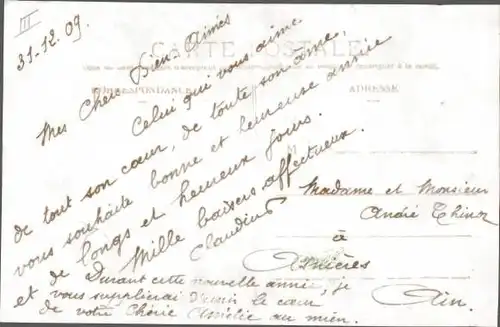 III
31.12.09.
CARTE POSTALE
CORRESPONDANCE
ADRESSE
Mes Chers Bien-Aimés
Celui qui vous aime
de tout son cœur, de toute son âme,
vous souhaite bonne et heureuse année
et de longs et heureux jours.
Mille baisers affectueux.
Claudius
Durant cette nouvelle année, je
vous supplierai d'unir le cœur
de votre chérie Amélie au mien.
M
Madame et Monsieur
André
à
Asnières
Ain.